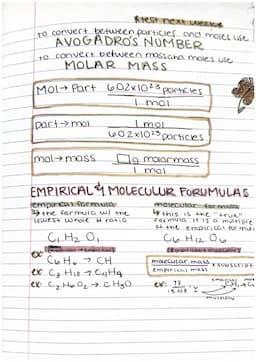 *test next week*
to convert between particles and moles use
AVOGADRO'S NUMBER
to convert between mass and moles use
MOLAR MASS
Mol → Part 6.02x10²³ particles
1 mol
part → mol 1 mol
6.02x10²³ particles
mol → mass □g molar mass
1 mol
EMPIRICAL & MOLECULUR FORUMULAS
empirical formula
↳ the formula w/ the
lowest whole # ratio
C₁ H₂ O₁
ex: C₆H₆ → CH
ex: C₈H₁₈ → C₄H₉
ex: C₂H₆O₂ → CH₃O
molecular formula
↳ this is the "true"
formula it is a multiple
of the empirical formula
C₆ H₁₂ O₆
molecular mass x subscript
empirical mass
ex: 78
multiply